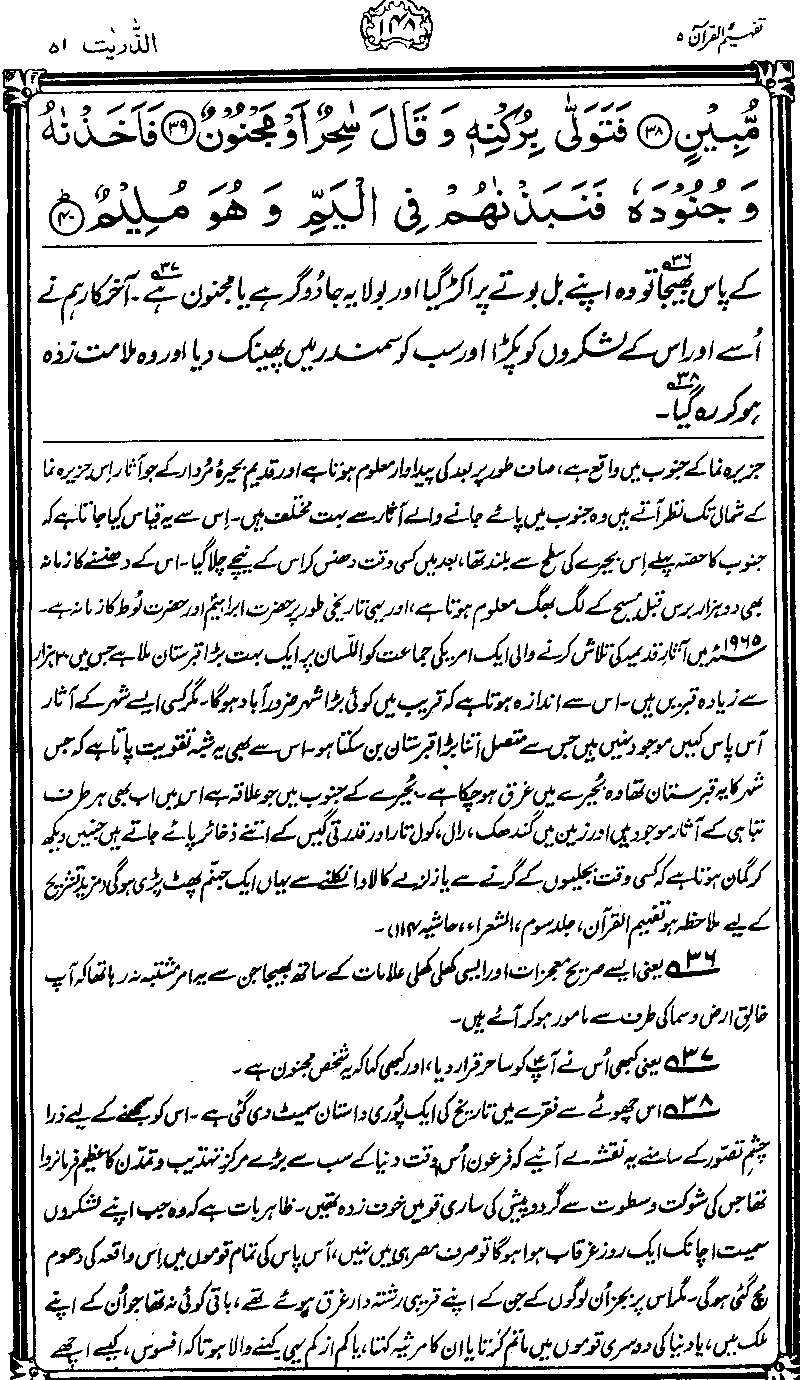 تفہیم القرآن ۵
۱۴۸
الذّٰریٰت ۵۱
مُّبِيْنٍ ۝۳۸ فَتَوَلّٰى بِرُكْنِهٖ وَ قَالَ سٰحِرٌ اَوْ مَجْنُوْنٌ ۝۳۹ فَاَخَذْنٰهُ
وَ جُنُوْدَهٗ فَنَبَذْنٰهُمْ فِي الْيَمِّ وَ هُوَ مُلِيْمٌ ۝۴۰ؕ
کے پاس بھیجا۳۶ تو وہ اپنے بل بوتے پر اکڑ گیا اور بولا یہ جادُوگر ہے یا مجنون ہے۳۷۔ آخر کار ہم نے
اُسے اور اس کے لشکروں کو پکڑا اور سب کو سمندر میں پھینک دیا اور وہ ملامت زدہ
ہو کر رہ گیا۳۸۔
جزیرہ نما کے جنوب میں واقع ہے، صاف طور پر بعد کی پیداوار معلوم ہوتا ہے اور قدیم بحیرۂ مُردار کے جو آثار اِس جزیرہ نما
کے شمال تک نظر آتے ہیں وہ جنوب میں پائے جانے والے آثار سے بہت مختلف ہیں۔ اِس سے یہ قیاس کیا جاتا ہے کہ
جنوب کا حصّہ پہلے اِس بحیرے کی سطح سے بلند تھا، بعد میں کسی وقت دھنس کر اس کے نیچے چلا گیا۔ اس کے دھنسنے کا زمانہ
بھی دو ہزار برس قبل مسیح کے لگ بھگ معلوم ہوتا ہے، اور یہی تاریخی طور پر حضرت ابراہیمؑ اور حضرت لُوط کا زمانہ ہے۔
۱۹۶۵ء میں آثارِ قدیمہ کی تلاش کرنے والی ایک امریکی جماعت کو اللّسان پر ایک بہت بڑا قبرستان ملا ہے جس میں ۲۰ ہزار
سے زیادہ قبریں ہیں۔ اس سے اندازہ ہوتا ہے کہ قریب میں کوئی بڑا شہر ضرور آباد ہوگا۔ مگر کسی ایسے شہر کے آثار
آس پاس کہیں موجود نہیں ہیں جس سے متصل اتنا بڑا قبرستان بن سکتا ہو۔ اس سے بھی یہ شبہ تقویت پاتا ہے کہ جس
شہر کا یہ قبرستان تھا وہ بُحیرے میں غرق ہو چکا ہے۔ بُحیرے کے جنوب میں جو علاقہ ہے اس میں اب بھی ہر طرف
تباہی کے آثار موجود ہیں اور زمین میں گندھک، رال، کول تار اور قدرتی گیس کے اتنے ذخائر پائے جاتے ہیں جنہیں دیکھ
کر گمان ہوتا ہے کہ کسی وقت بجلیوں کے گرنے سے یا زلزلے کا لاوا نکلنے سے یہاں ایک جہنّم پھٹ پڑی ہوگی (مزید تشریح
کے لیے ملاحظہ ہو تفہیم القرآن، جلد سوم، الشعراء، حاشیہ ۱۱۴)۔
۳۶ یعنی ایسے صریح معجزات اور ایسی کھلی کھلی علامات کے ساتھ بھیجا جن سے یہ امر مشتبہ نہ رہا تھا کہ آپ
خالقِ ارض و سما کی طرف سے مامور ہو کر آئے ہیں۔
۳۷ یعنی کبھی اُس نے آپؑ کو ساحر قرار دیا، اور کبھی کہا کہ یہ شخص مجنون ہے۔
۳۸ اس چھوٹے سے فقرے میں تاریخ کی ایک پُوری داستان سمیٹ دی گئی ہے۔ اس کو سمجھنے کے لیے ذرا
چشمِ تصوّر کے سامنے یہ نقشہ لے آئیے کہ فرعون اُس وقت دنیا کے سب سے بڑے مرکزِ تہذیب و تمدّن کا عظیم فرمانروا
تھا جس کی شوکت و سطوت سے گردوپیش کی ساری قومیں خوف زدہ تھیں۔ ظاہر بات ہے کہ وہ جب اپنے لشکروں
سمیت اچانک ایک روز غرقاب ہوا ہوگا تو صرف مصر ہی میں نہیں، آس پاس کی تمام قوموں میں اِس واقعہ کی دھوم
مچ گئی ہوگی۔ مگر اس پر بجز اُن لوگوں کے جن کے اپنے قریبی رشتہ دار غرق ہوئے تھے، باقی کوئی نہ تھا جو اُن کے اپنے
ملک میں، یا دنیا کی دوسری قوموں میں ماتم کرتا یا ان کا مرثیہ کہتا، یا کم از کم یہی کہنے والا ہوتا کہ افسوس، کیسے اچھے